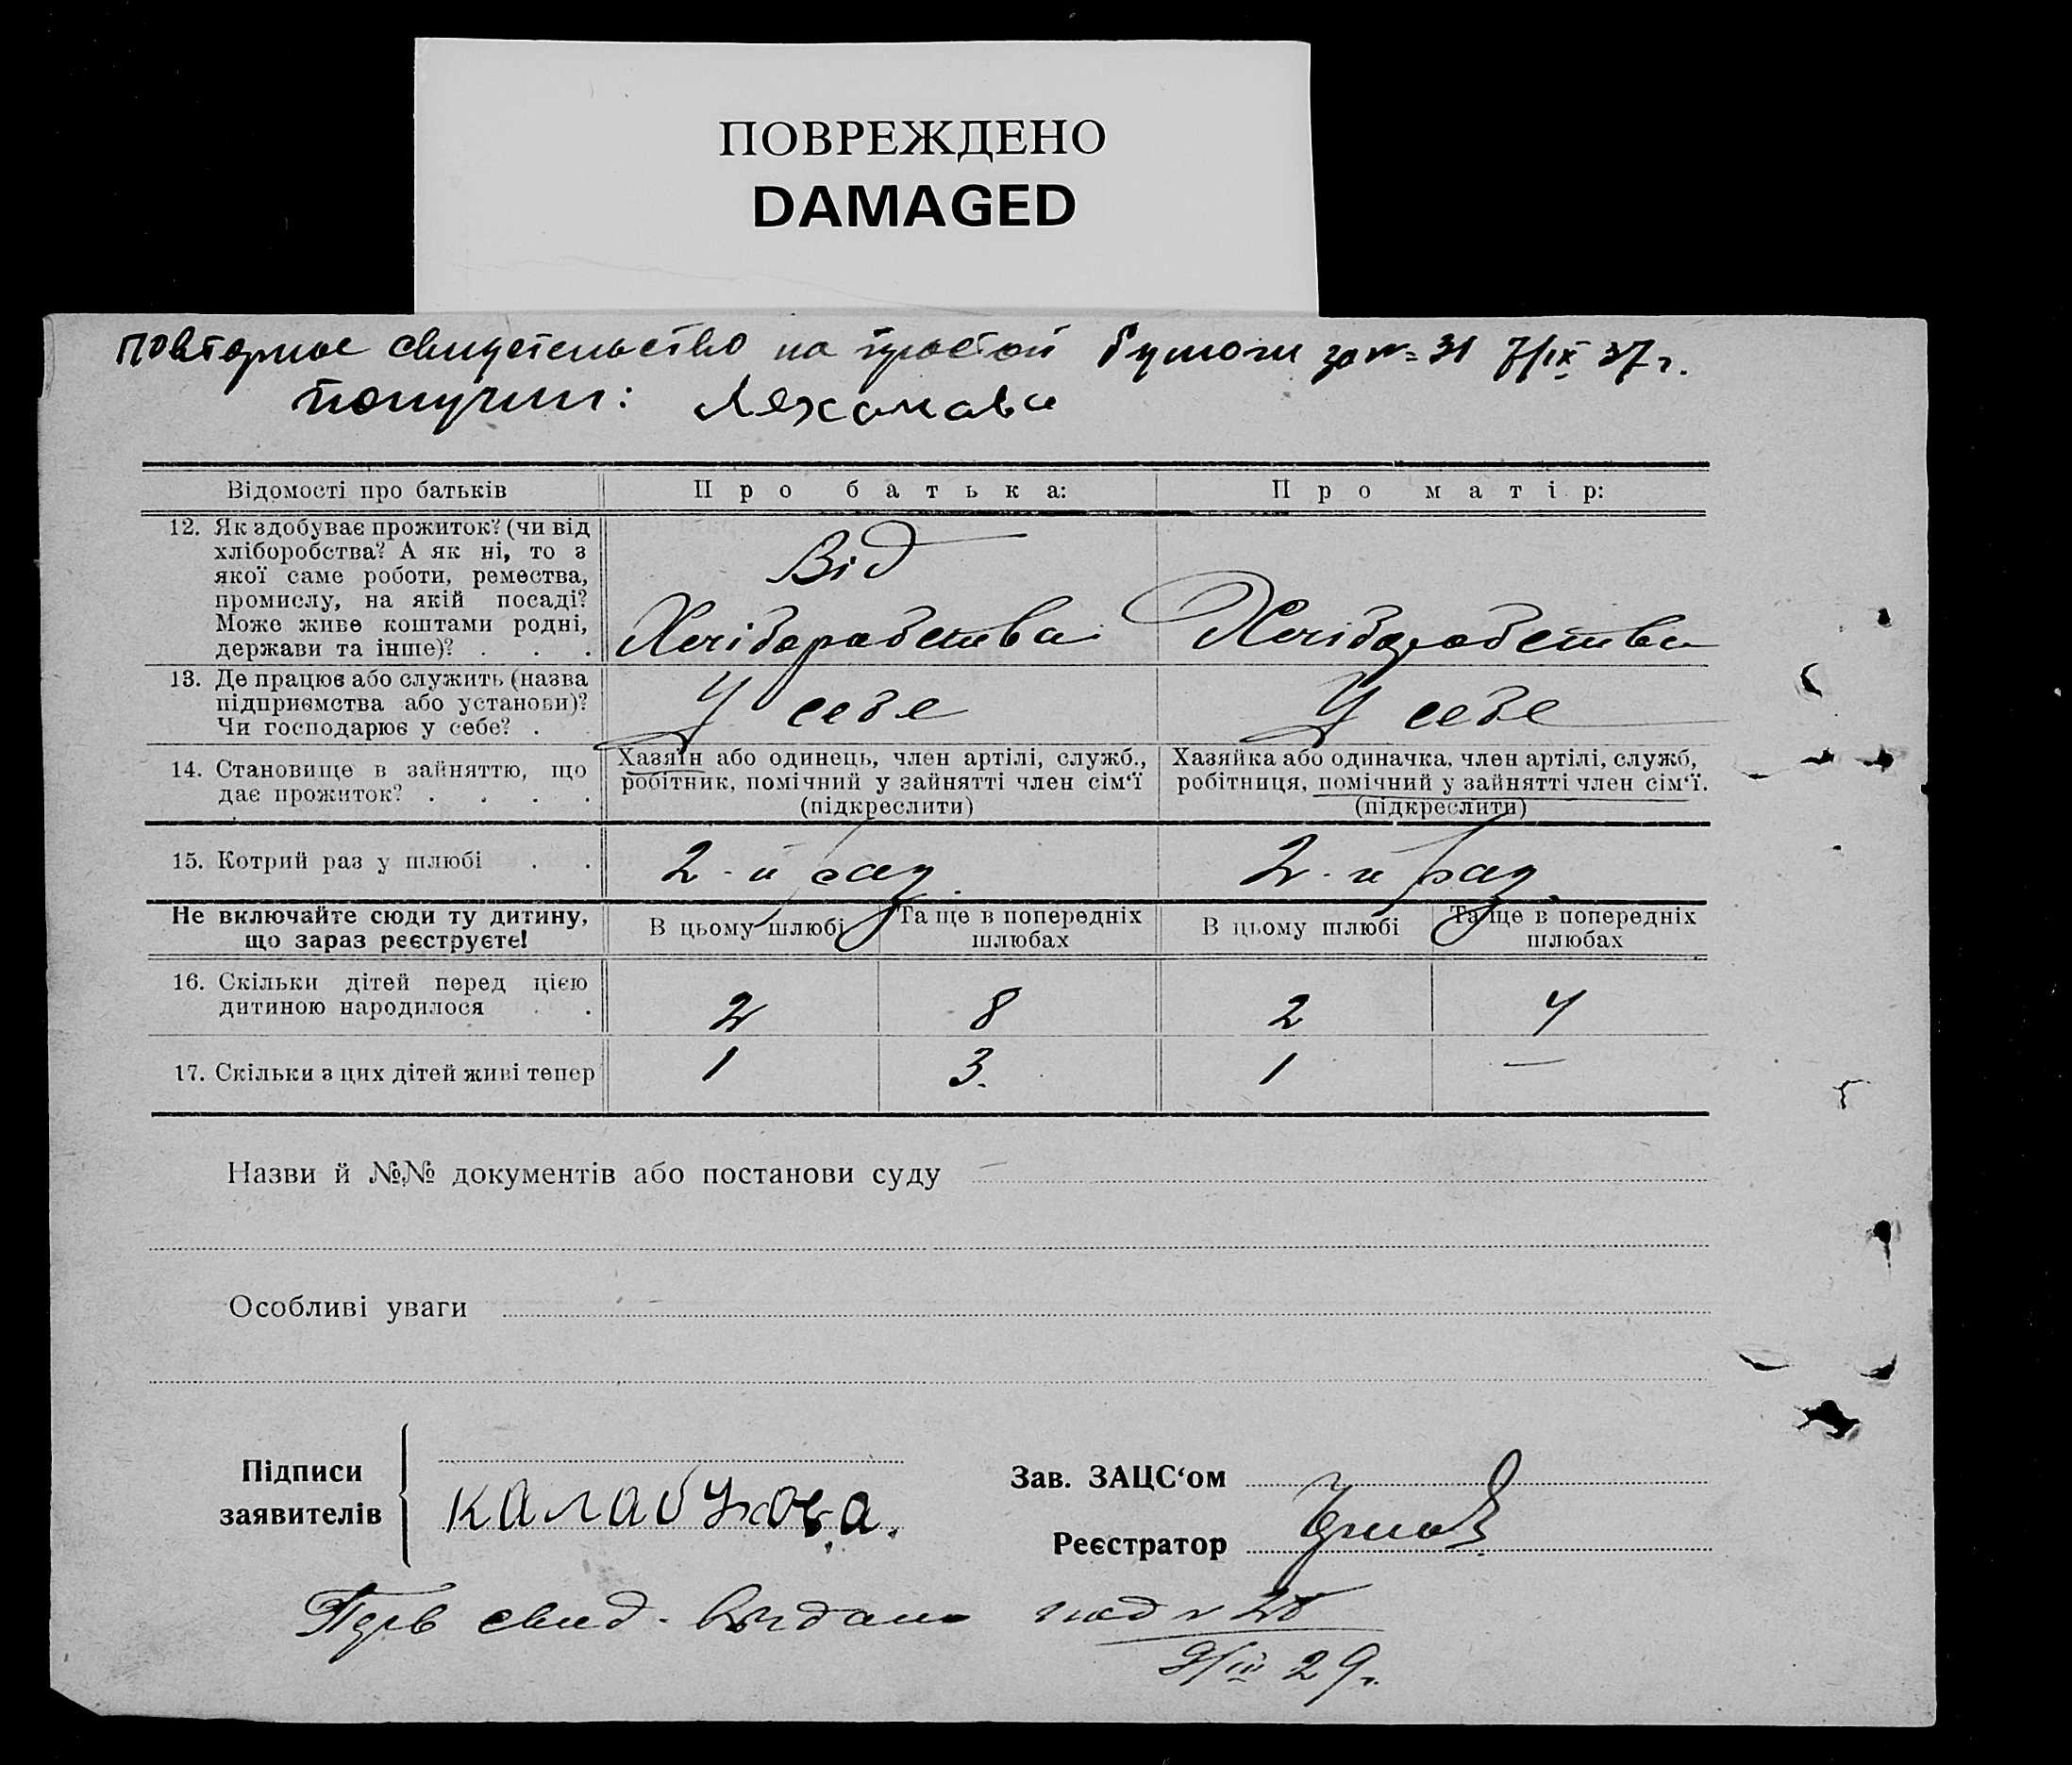 ПОВРЕЖДЕНО
DAMAGED
повторное свидетельство на простой бумоги за №= 31 7/ІХ 37 г.
получил:
Відомості про батьків
Про батька:
Про матір:
12. Як здобуває прожиток? (чи від
хліборобства? А як ні, то з
якої саме роботи, ремества,
промислу, на якій посаді?
Може живе коштами родні,
держави та інше)? . . .
Від
Хліборобства
Хліборобства
13. Де працює або служить (назва
підприємства або установи)?
Чи господарює у себе? .
У себе
У себе
14. Становище в зайняттю, що
дає прожиток? . . . .
Хазяїн або одинець, член артілі, служб.,
робітник, помічний у зайнятті член сім‘ї
(підкреслити)
Хазяйка або одиначка, член артілі, служб,
робітниця, помічний у зайнятті член сім‘ї.
(підкреслити)
15. Котрий раз у шлюбі . .
2-й раз.
2-й раз.
Не включайте сюди ту дитину,
що зараз реєструєте!
В цьому шлюбі
Та ще в попередніх
шлюбах
В цьому шлюбі
Та ще в попередніх
шлюбах
16. Скільки дітей перед цією
дитиною народилося . .
2
8
2
4
17. Скільки з цих дітей живі тепер
1
3.
1
—
Назви й №№ документів або постанови суду
Особливі уваги
Підписи
заявителів
Калабухова.
Зав. ЗАЦС‘ом
Реєстратор
Перв свид. выдано под №
29 г.